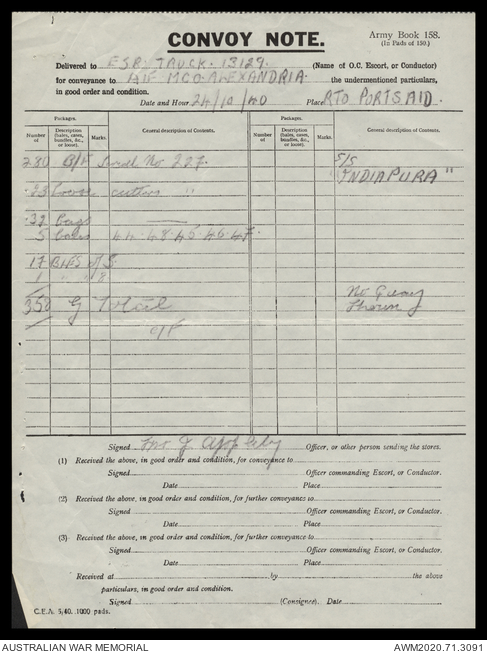 CONVOY NOTE.
Army Book 158.
(In Pads of 150.)
Delivered to ESR TRUCK. 13129. (Name of O.C. Escort, or Conductor)
for conveyance to AIF MCO ALEXANDRIA the undermentioned particulars,
in good order and condition.
Date and Hour 24/10/40 Place RTO PORT SAID.
Packages. Packages.
Number of Description (bales, cases, bundles, &c., or loose). Marks. General description of Contents. Number of Description (bales, cases, bundles, &c., or loose). Marks. General description of Contents.
280 B/F No 227. S/S
23 Loose " "INDIAPURA"
32 Bags
5 44. 48. 45. 46. 47.
17 BLES of 5
1 " " 8
358 No
Shown
Signed Officer, or other person sending the stores.
(1) Received the above, in good order and condition, for conveyance to
Signed Officer commanding Escort, or Conductor.
Date Place
(2) Received the above, in good order and condition, for further conveyance to
Signed Officer commanding Escort, or Conductor.
Date Place
(3) Received the above, in good order and condition, for further conveyance to
Signed Officer commanding Escort, or Conductor.
Date Place
Received at by the above
particulars, in good order and condition.
Signed (Consignee). Date
C.E.A. 5/40. 1000 pads.
AUSTRALIAN WAR MEMORIAL AWM2020.71.3091